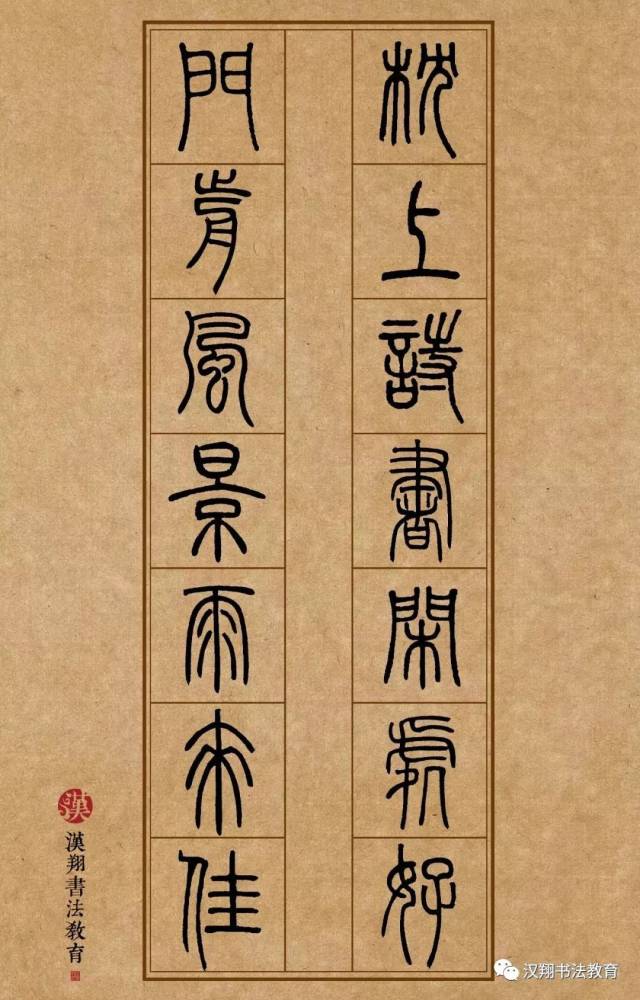 枕上詩書閑處好
門前風景雨來佳
漢
漢翔書法教育
汉翔书法教育